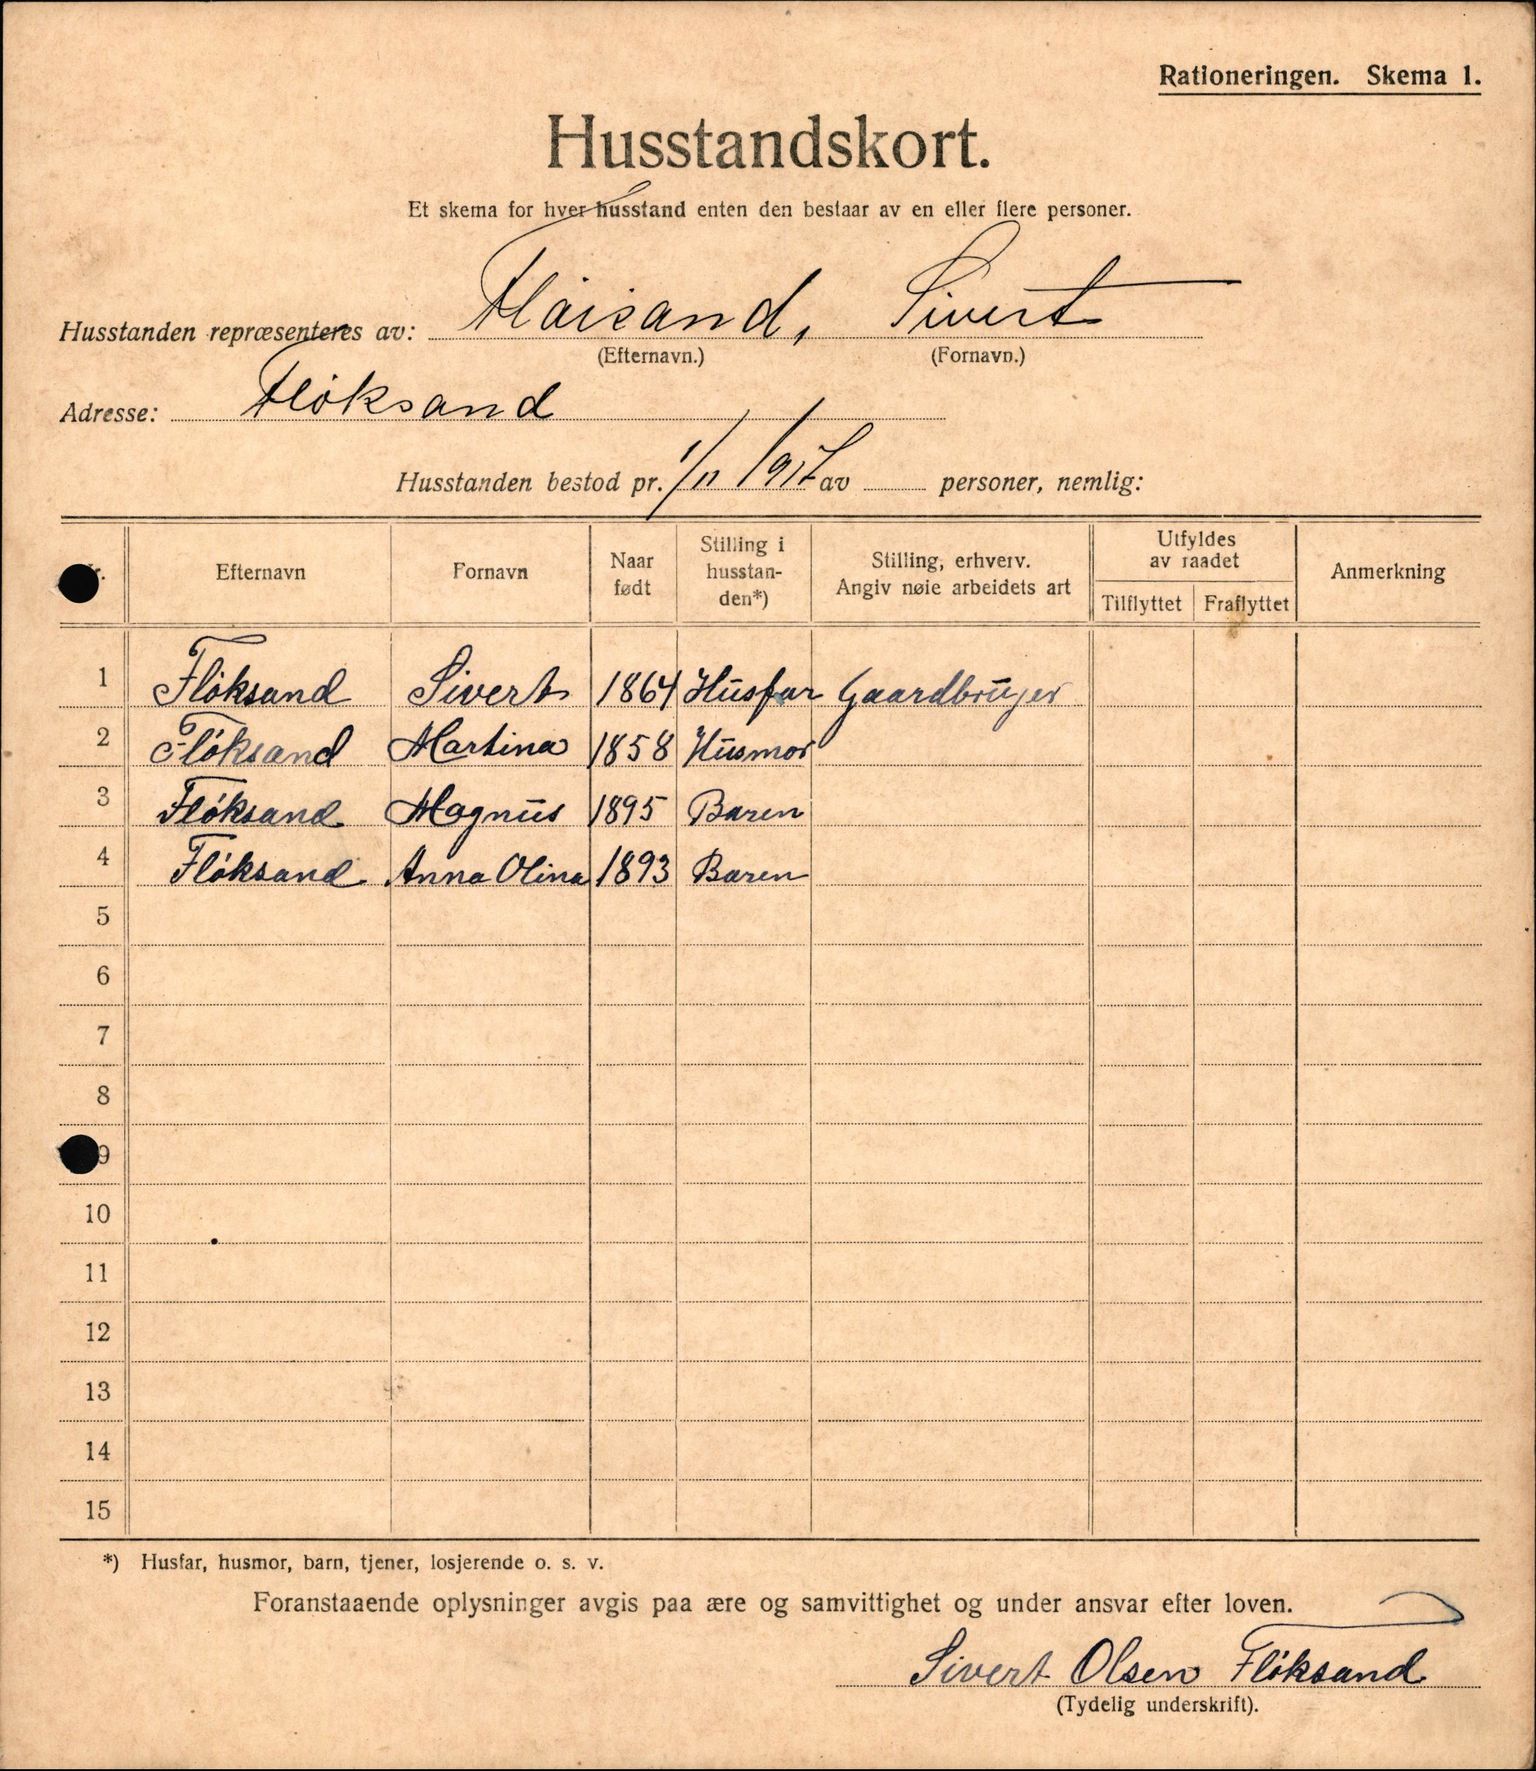 Rationeringen. Skema 1.
Husstandskort.
Et skema for hver husstand enten den bestaar av en eller flere personer.
Husstanden repræsenteres av: Fløisand, Sivert
(Efternavn.) (Fornavn.)
Adresse: Fløksand
Husstanden bestod pr. 1/11 1917 av personer, nemlig:
Efternavn Fornavn Naar født Stilling i husstanden*) Stilling, erhverv. Angiv nøie arbeidets art Utfyldes av raadet Tilflyttet Fraflyttet Anmerkning
1 Fløksand Sivert 1864 Husfar Gaardbruger
2 Fløksand Martina 1858 Husmor
3 Fløksand Magnus 1895 Baren
4 Fløksand Anna Olina 1893 Baren
5
6
7
8
9
10
11
12
13
14
15
*) Husfar, husmor, barn, tjener, losjerende o. s. v.
Foranstaaende oplysninger avgis paa ære og samvittighet og under ansvar efter loven.
Sivert Olsen Fløksand
(Tydelig underskrift).